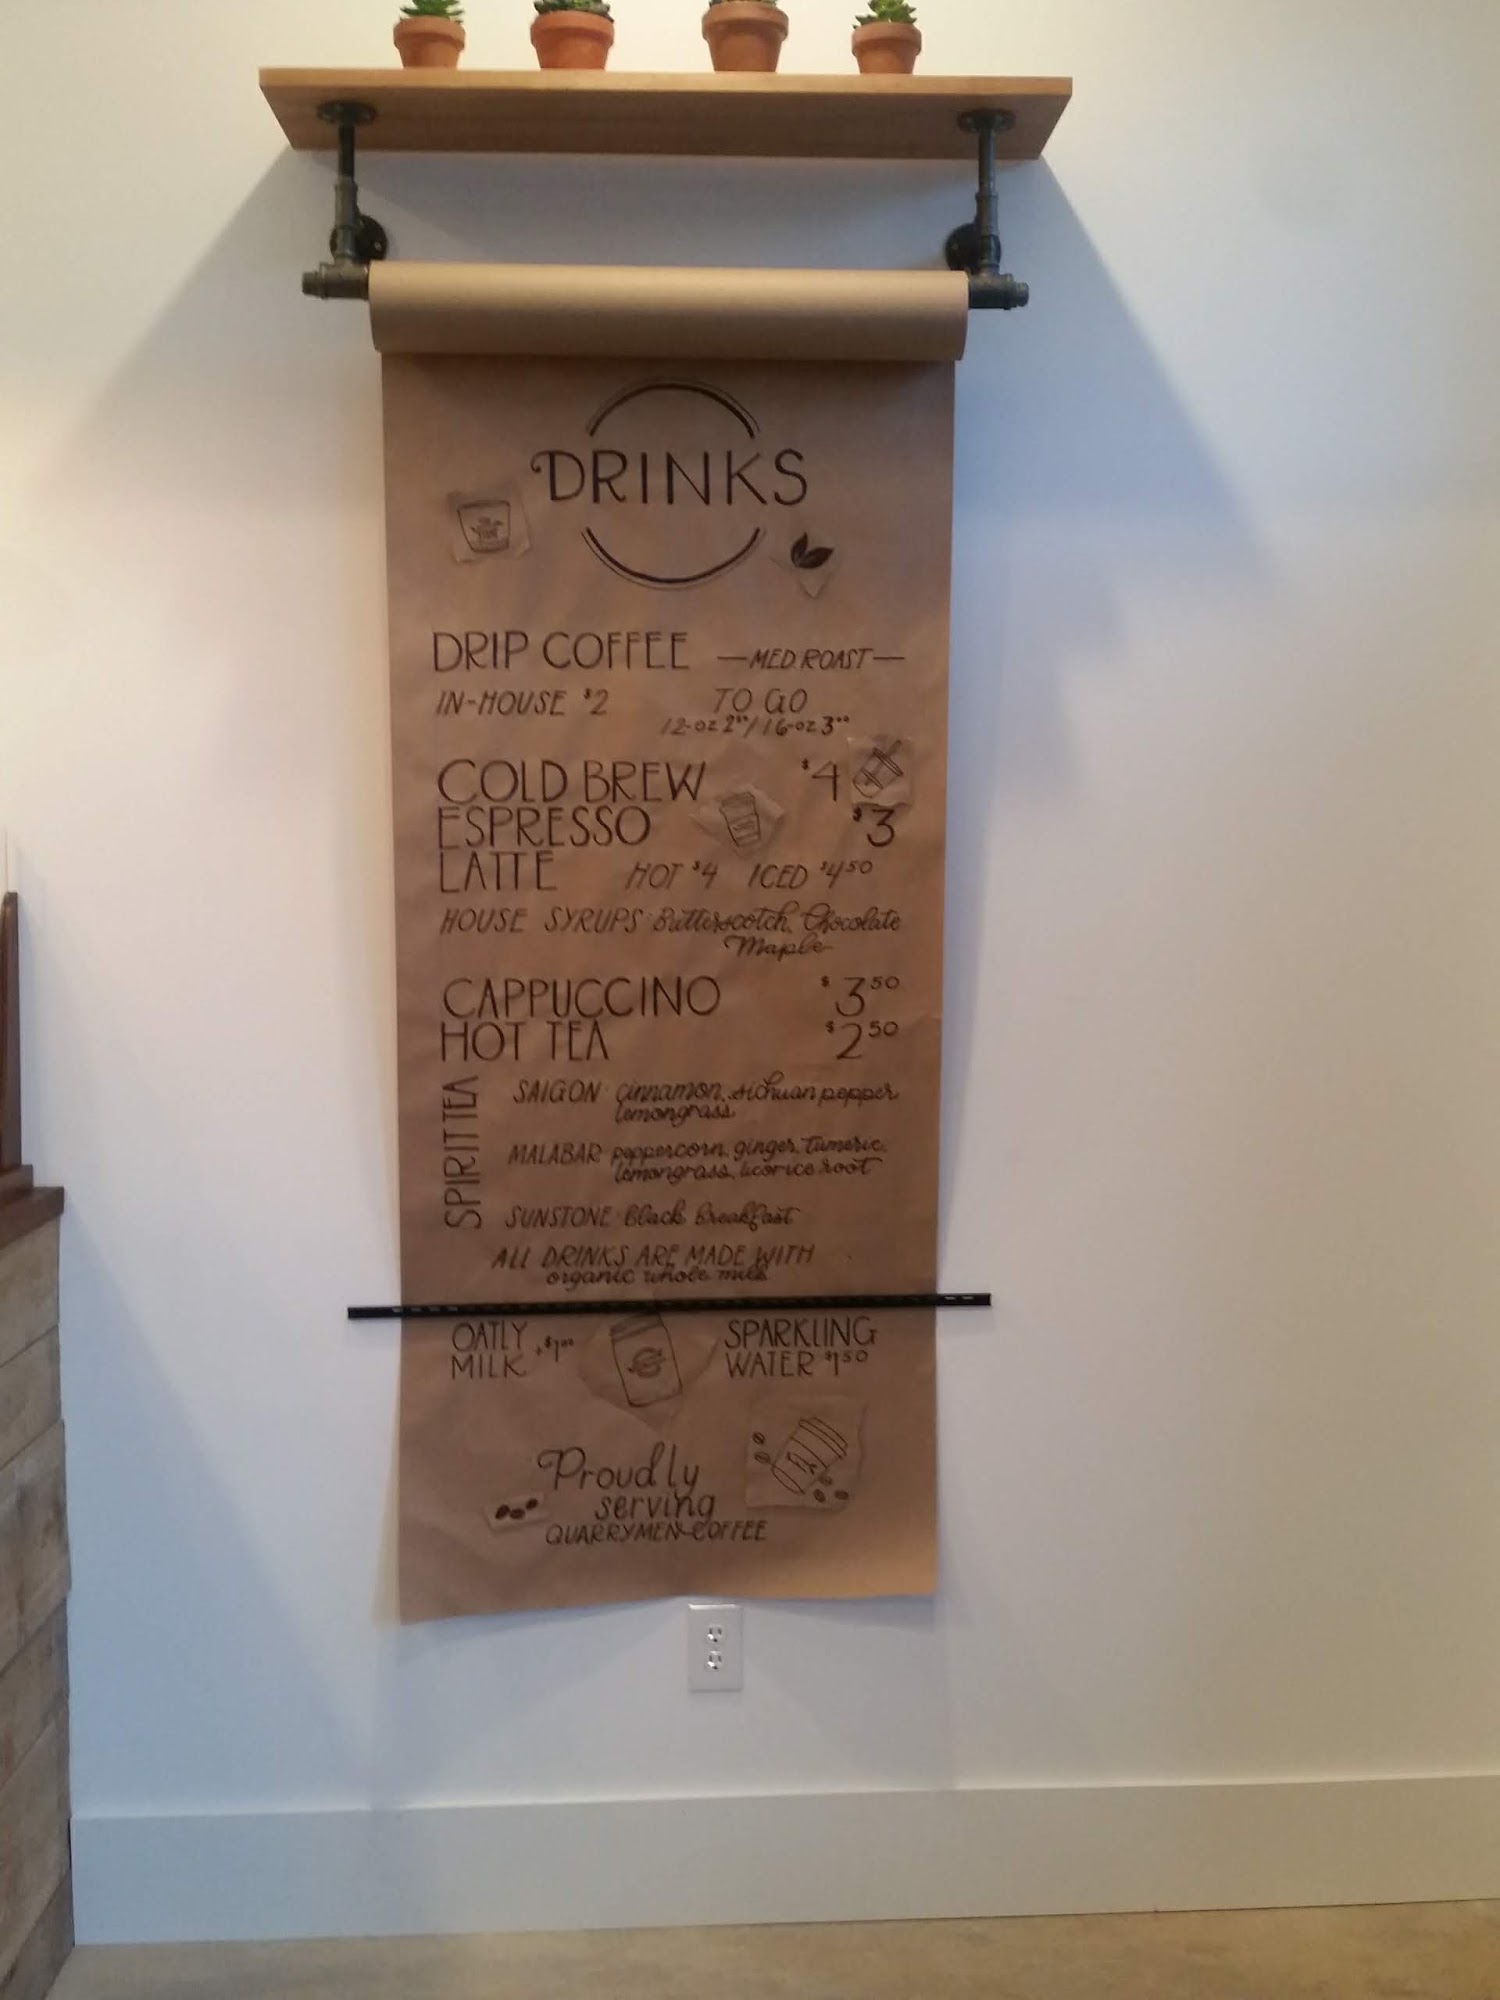 DRINKS
DRIP COFFEE —MED. ROAST—
IN-HOUSE $2 TO GO
12-oz 2⁰⁰/16-oz 3⁰⁰
COLD BREW $4
ESPRESSO $3
LATTE HOT $4 ICED $4⁵⁰
HOUSE SYRUPS: Butterscotch, Chocolate
Maple
CAPPUCCINO $3⁵⁰
HOT TEA $2⁵⁰
SPIRIT TEA
SAIGON: cinnamon, sichuan pepper,
lemongrass
MALABAR: peppercorn, ginger, tumeric,
lemongrass, licorice root
SUNSTONE: Black Breakfast
ALL DRINKS ARE MADE WITH
organic whole milk
OATLY +$1⁰⁰
MILK
SPARKLING
WATER $1⁵⁰
Proudly
serving
QUARRYMEN COFFEE